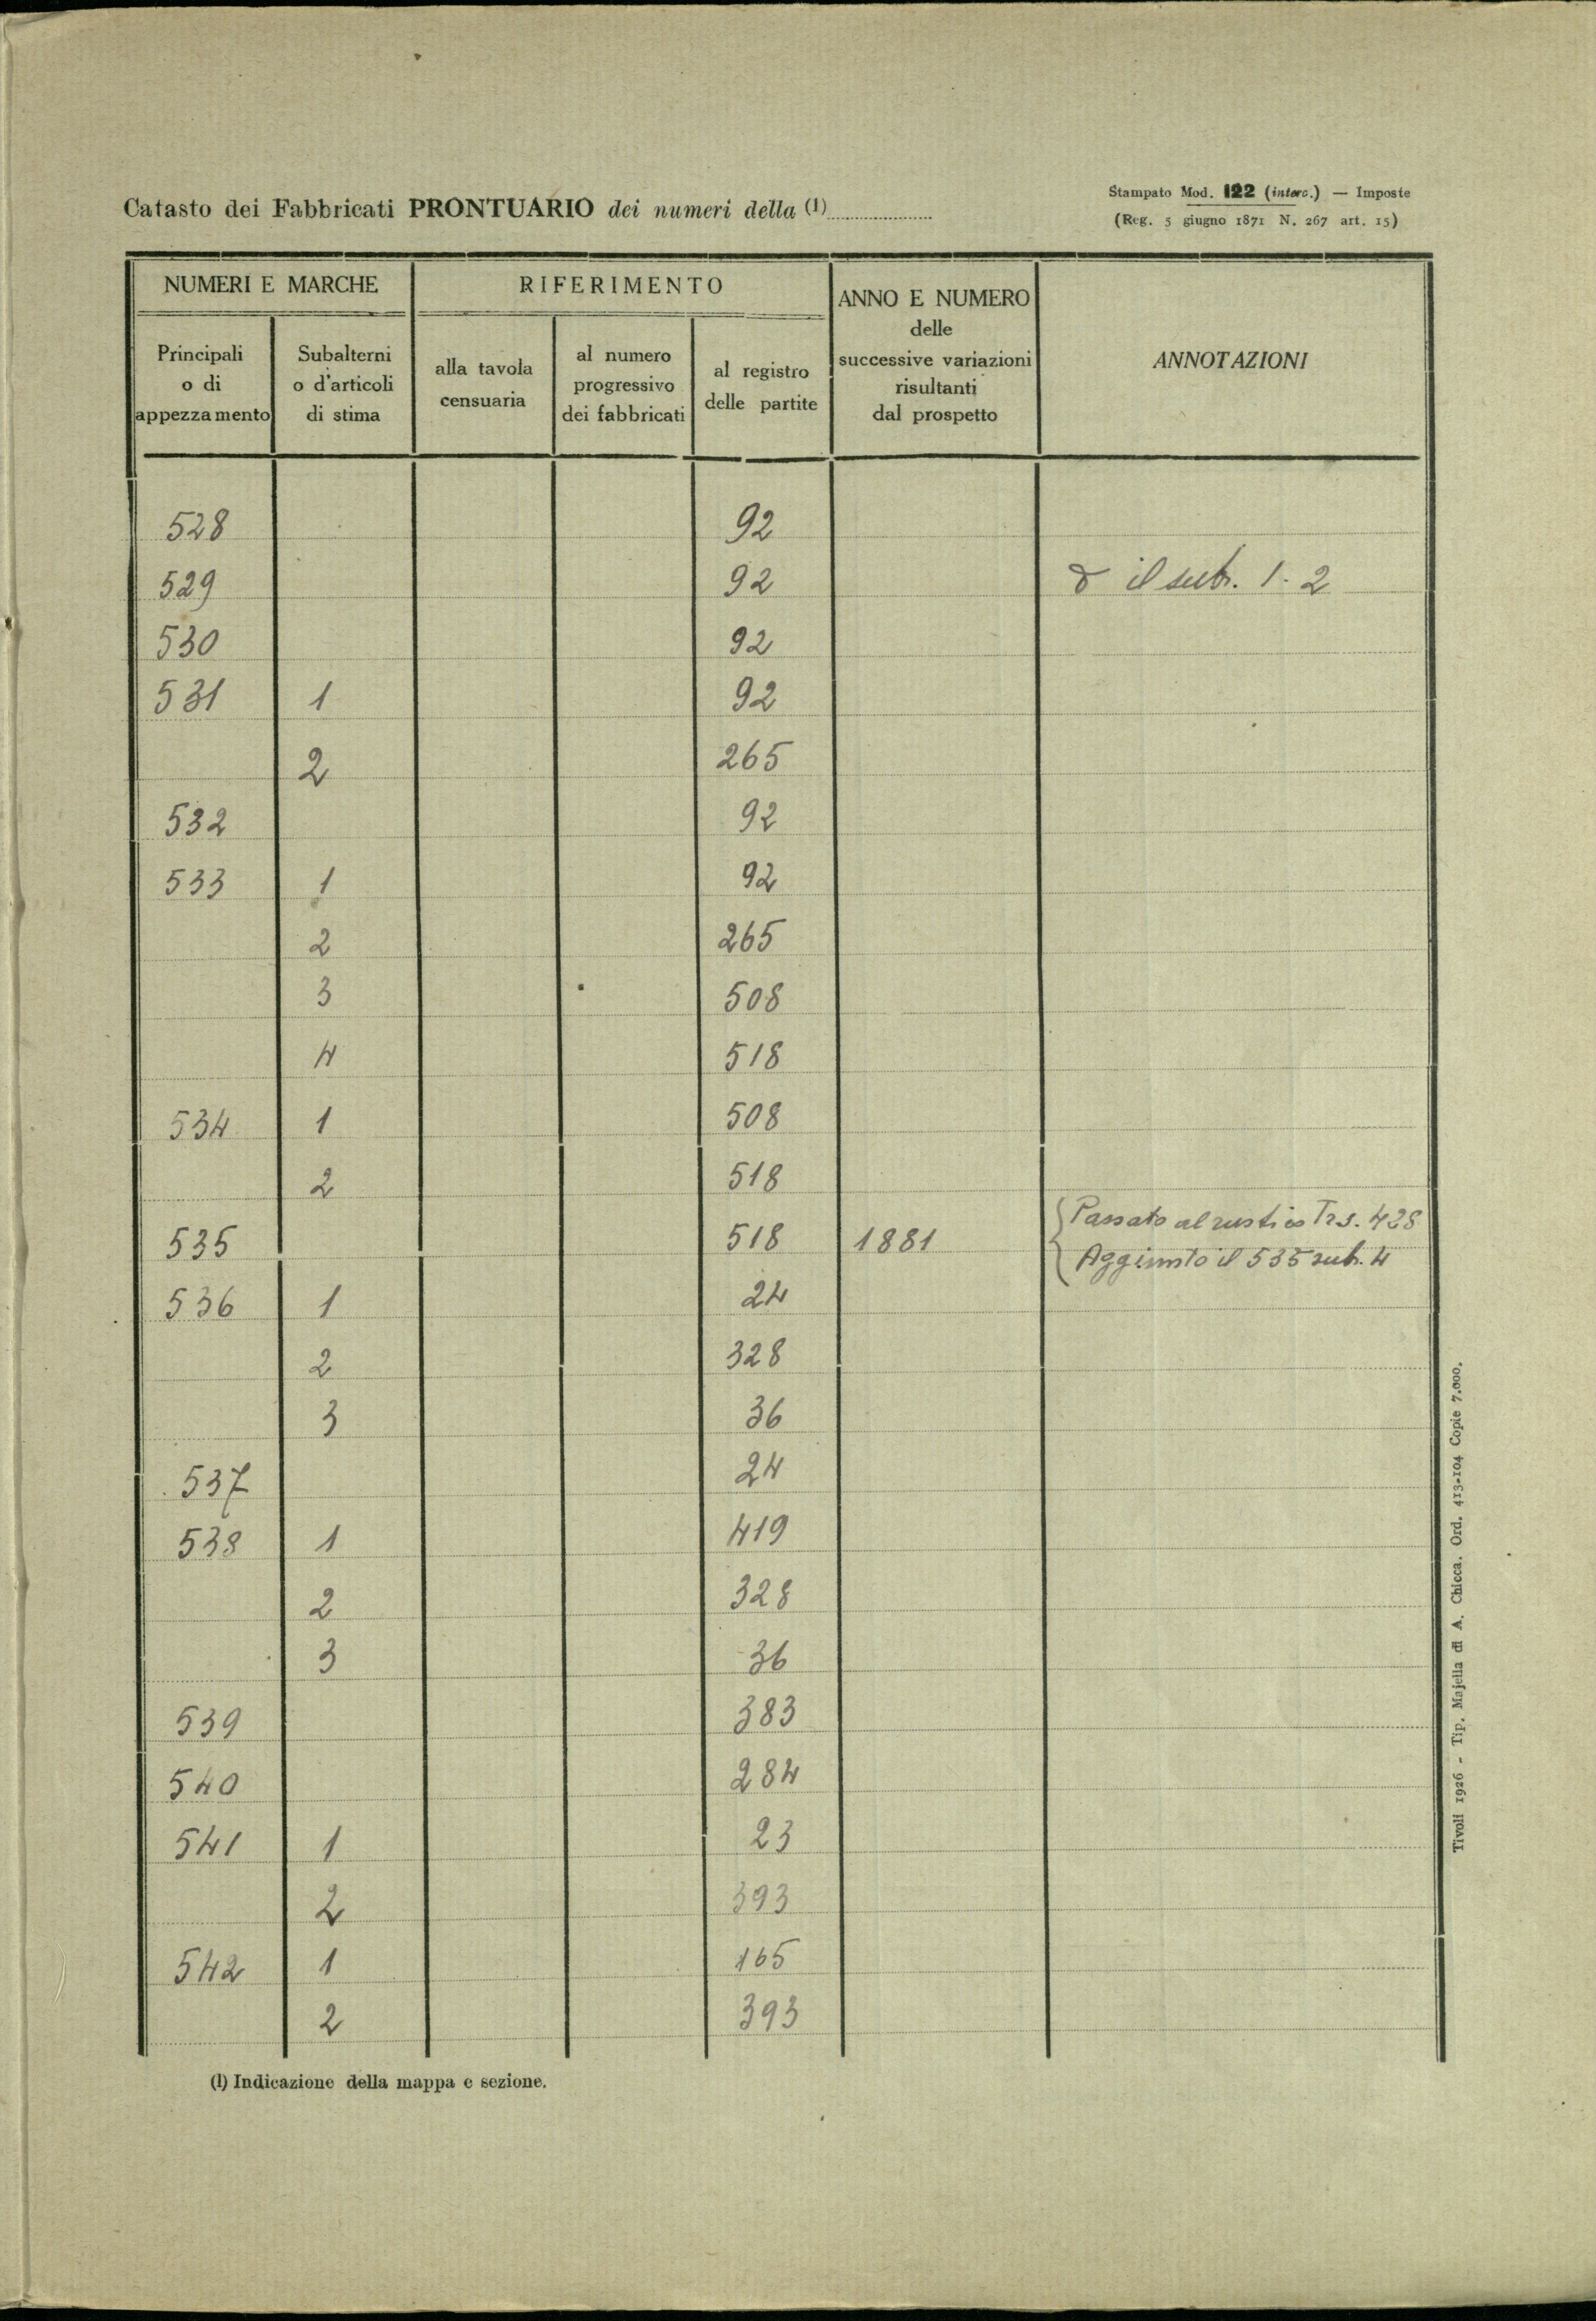 Stampato Mod. 122 (interc.) — Imposte
Catasto dei Fabbricati PRONTUARIO dei numeri della (1)
(Reg. 5 giugno 1871 N. 267 art. 15)
NUMERI E MARCHE
RIFERIMENTO
ANNO E NUMERO
delle
successive variazioni
risultanti
dal prospetto
ANNOTAZIONI
Principali
o di
appezzamento
Subalterni
o d'articoli
di stima
alla tavola
censuaria
al numero
progressivo
dei fabbricati
al registro
delle partite
528 92
529 92 il sub. 1-2
530 92
531 1 92
2 265
532 92
533 1 92
2 265
3 508
4 518
534 1 508
2 518
Passato al rustico Trs. 428
535 518 1881
Aggiunto il 535 sub. 4
536 1 24
2 328
3 36
537 24
538 1 419
2 328
3 36
539 383
540 284
541 1 23
2 393
542 1 165
2 393
(1) Indicazione della mappa e sezione.
Tivoli 1926 - Tip. Majella di A. Chicca. Ord. 413-104 Copie 7.000.